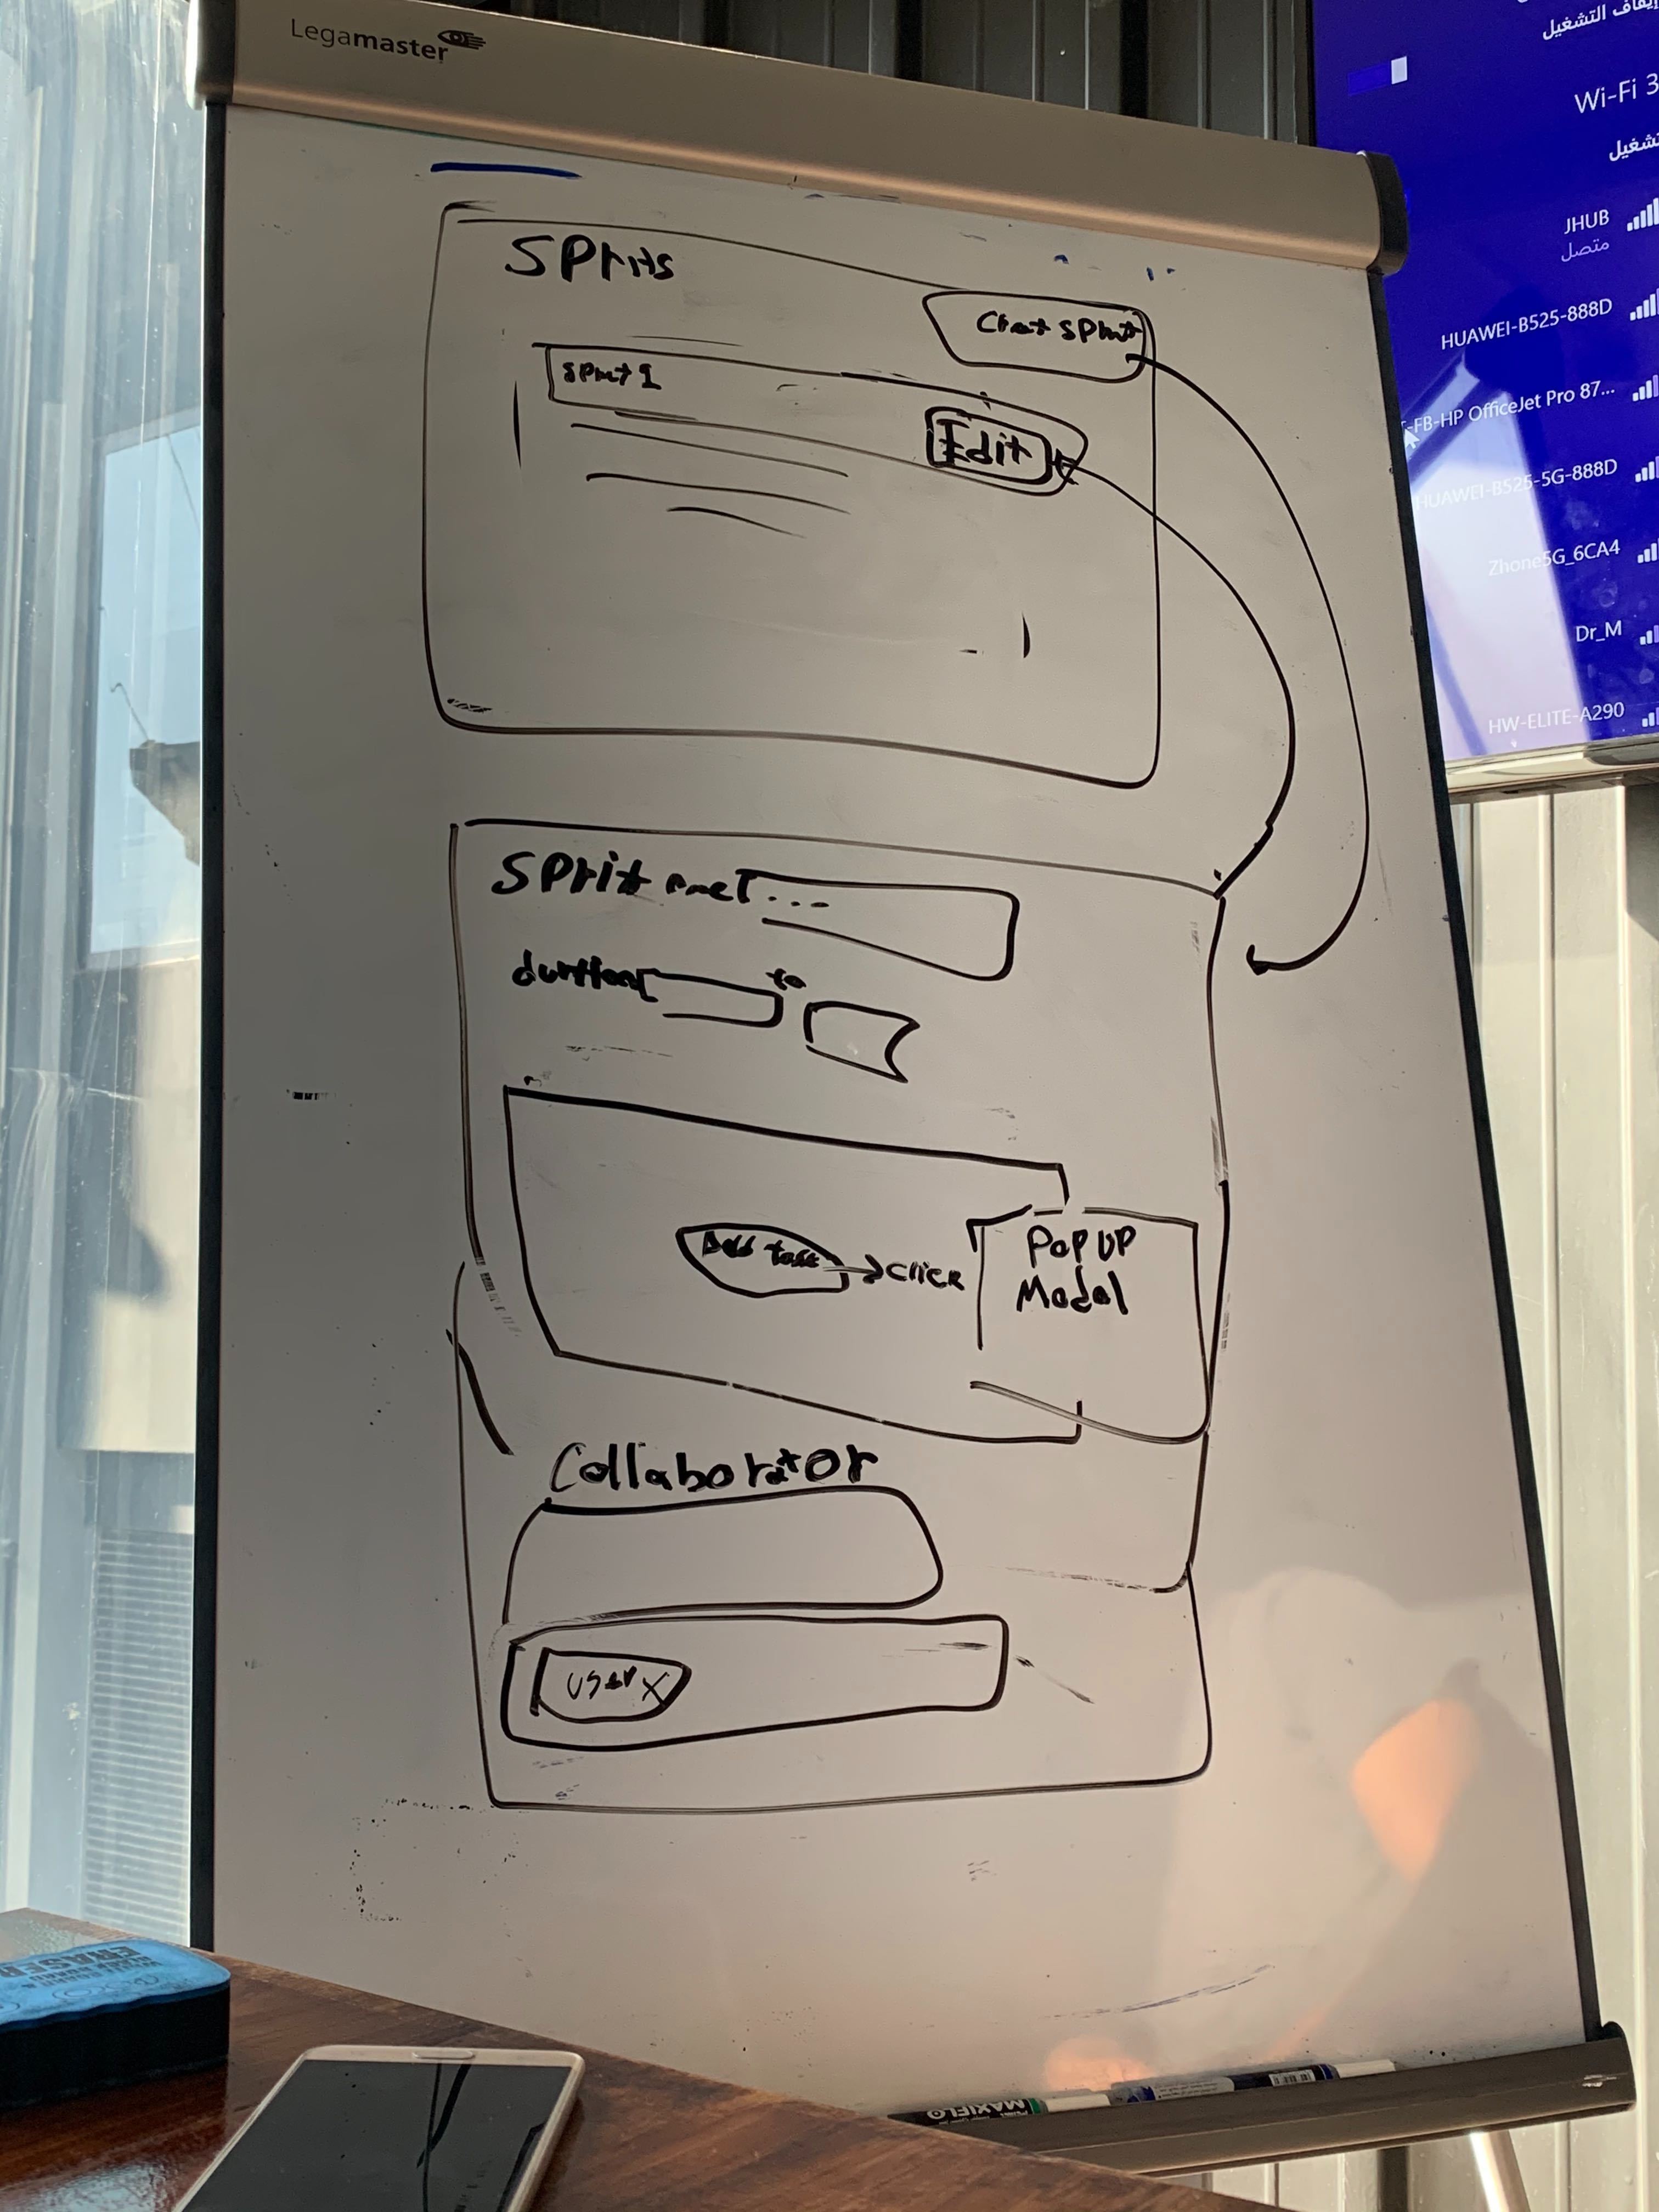 Legamaster
SPrits
Creat SPrint
SPrint 1
Edit
SPrit name ...
duration
to
Add task
click
PoP UP
Modal
Collaborator
user X
إيقاف التشغيل
Wi-Fi 3
تشغيل
JHUB
متصل
HUAWEI-B525-888D
-FB-HP OfficeJet Pro 87...
HUAWEI-B525-5G-888D
Zhone5G_6CA4
Dr_M
HW-ELITE-A290
ERASER
MAXIFLO